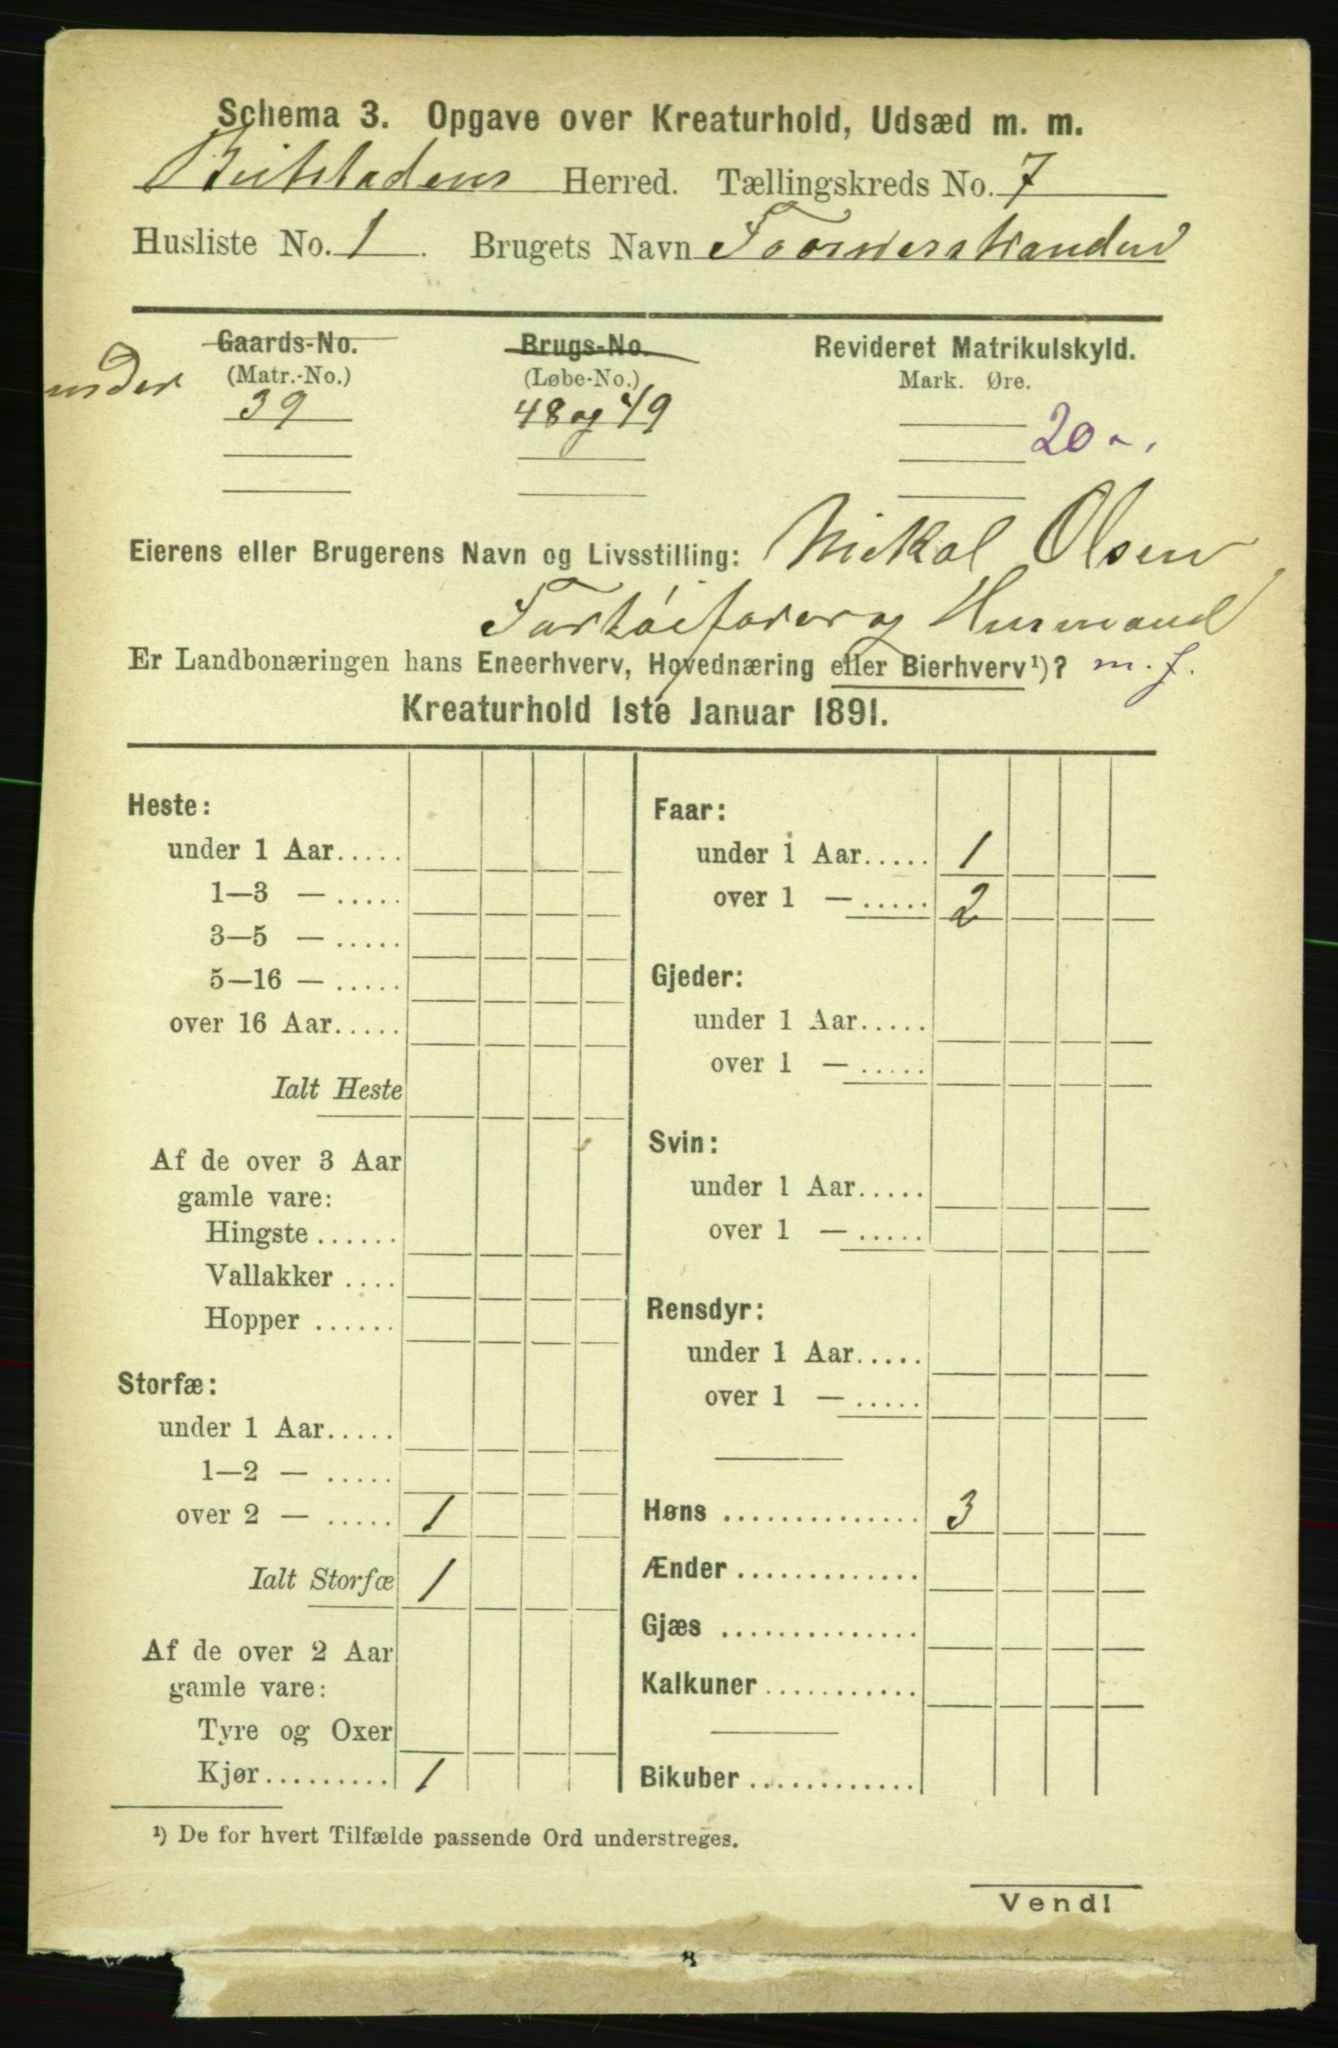 Schema 3. Opgave over Kreaturhold, Udsæd m. m.
Beitstadens Herred. Tællingskreds No. 7
Husliste No. 1. Brugets Navn Foosnerstranden
Gaards-No. Brugs-No. Revideret Matrikulskyld.
under (Matr.-No.) (Løbe-No.) Mark. Øre.
39 48 og 49
20
Eierens eller Brugerens Navn og Livsstilling: Nikol Olsen
Fartøifører og Husmand
Er Landbonæringen hans Eneerhverv, Hovednæring eller Bierhverv¹)? m. f.
Kreaturhold 1ste Januar 1891.
Heste:
under 1 Aar.....
1—3 — .....
3—5 — .....
5—16 — .....
over 16 Aar.....
Ialt Heste
Af de over 3 Aar
gamle vare:
Hingste ......
Vallakker ....
Hopper ......
Storfæ:
under 1 Aar.....
1—2 — .....
over 2 — ..... 1
Ialt Storfæ 1
Af de over 2 Aar
gamle vare:
Tyre og Oxer
Kjør......... 1
Faar:
under 1 Aar..... 1
over 1 — ..... 2
Gjeder:
under 1 Aar.....
over 1 — .....
Svin:
under 1 Aar.....
over 1 — .....
Rensdyr:
under 1 Aar.....
over 1 — .....
Høns .............. 3
Ænder .............
Gjæs ..............
Kalkuner ...........
Bikuber ............
¹) De for hvert Tilfælde passende Ord understreges.
Vend!